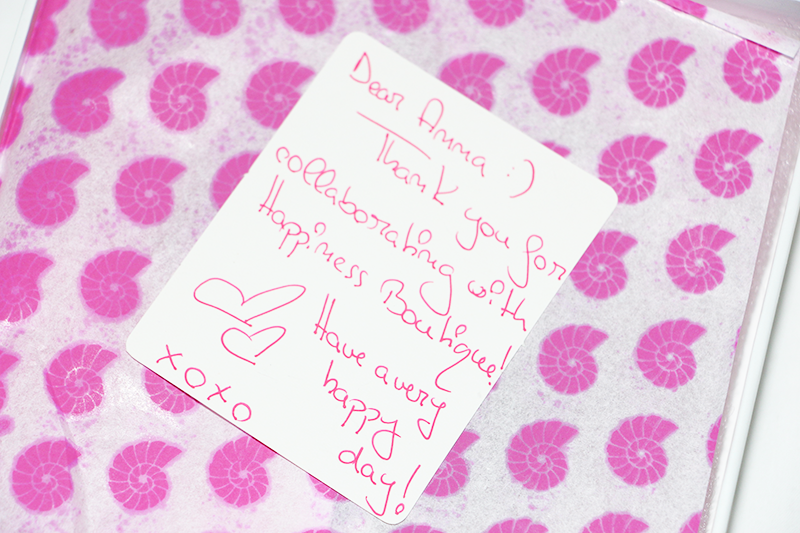 Dear Anna :)
Thank you for
collaborating with
Happiness Boutique!
Have a very
happy
day!
xoxo